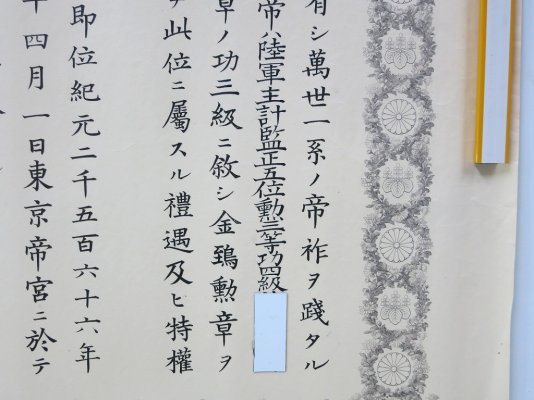 有シ萬世一系ノ帝祚ヲ踐タル
帝ハ陸軍主計監正五位勲三等功四級
章ノ功三級ニ敘シ金鵄勲章ヲ
此位ニ屬スル禮遇及ヒ特權
即位紀元二千五百六十六年
四月一日東京帝宮ニ於テ